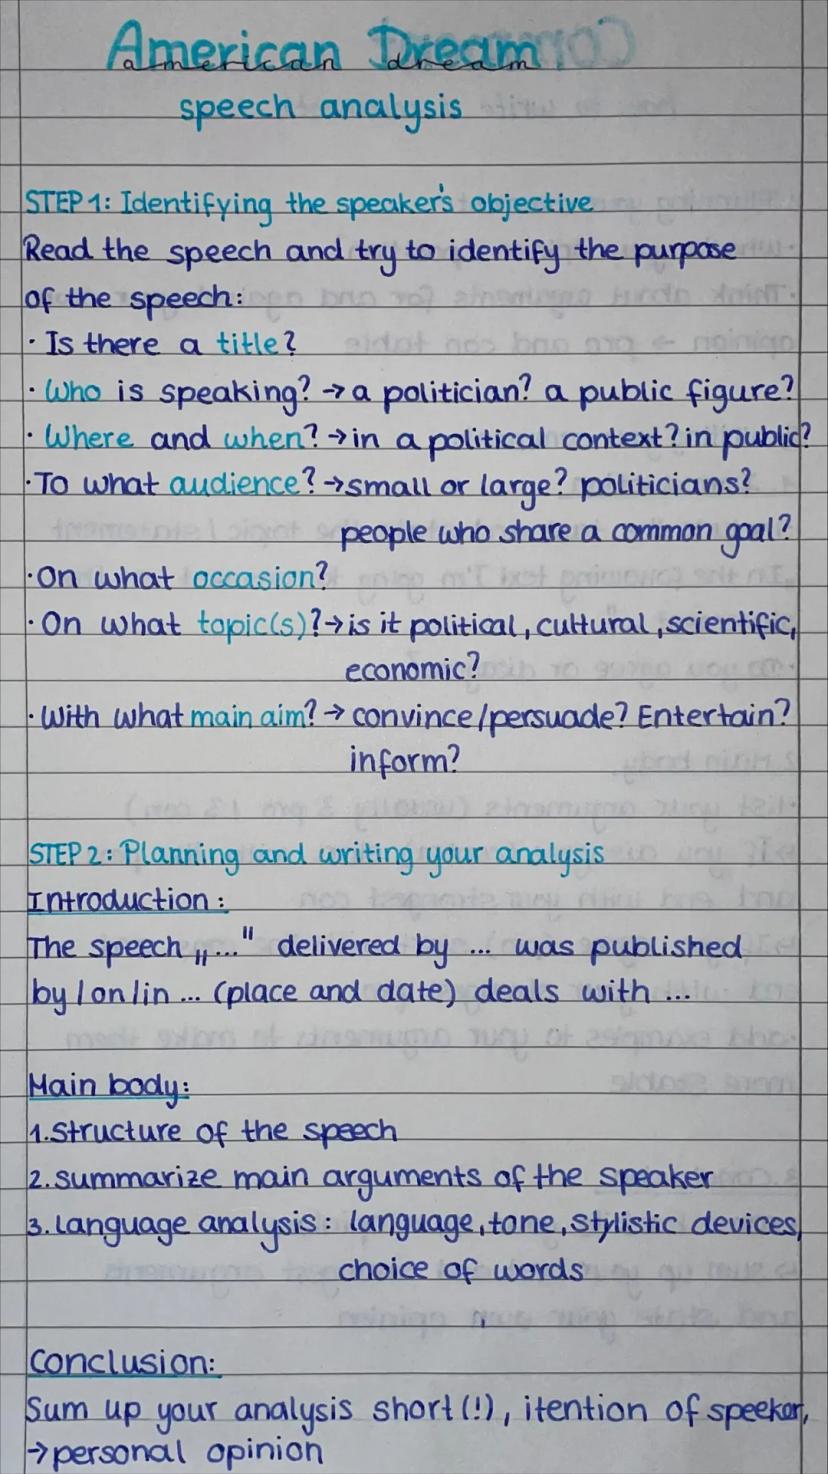 American Dream
american dream
speech analysis
STEP 1: Identifying the speaker's objective
Read the speech and try to identify the purpose
of the speech:
· Is there a title?
· Who is speaking? → a politician? a public figure?
· Where and when? → in a political context? in public?
· To what audience? → small or large? politicians?
people who share a common goal?
· On what occasion?
· On what topic(s)? → is it political, cultural, scientific,
economic?
· With what main aim? → convince/persuade? Entertain?
inform?
STEP 2: Planning and writing your analysis
Introduction:
The speech „..." delivered by ... was published
by/on/in ... (place and date) deals with ...
Main body:
1. Structure of the speech
2. summarize main arguments of the speaker
3. language analysis: language, tone, stylistic devices,
choice of words
Conclusion:
Sum up your analysis short (!), itention of speeker,
→ personal opinion